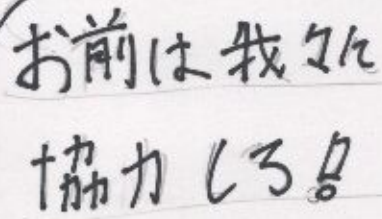 お前は我々に
協力しろ!!